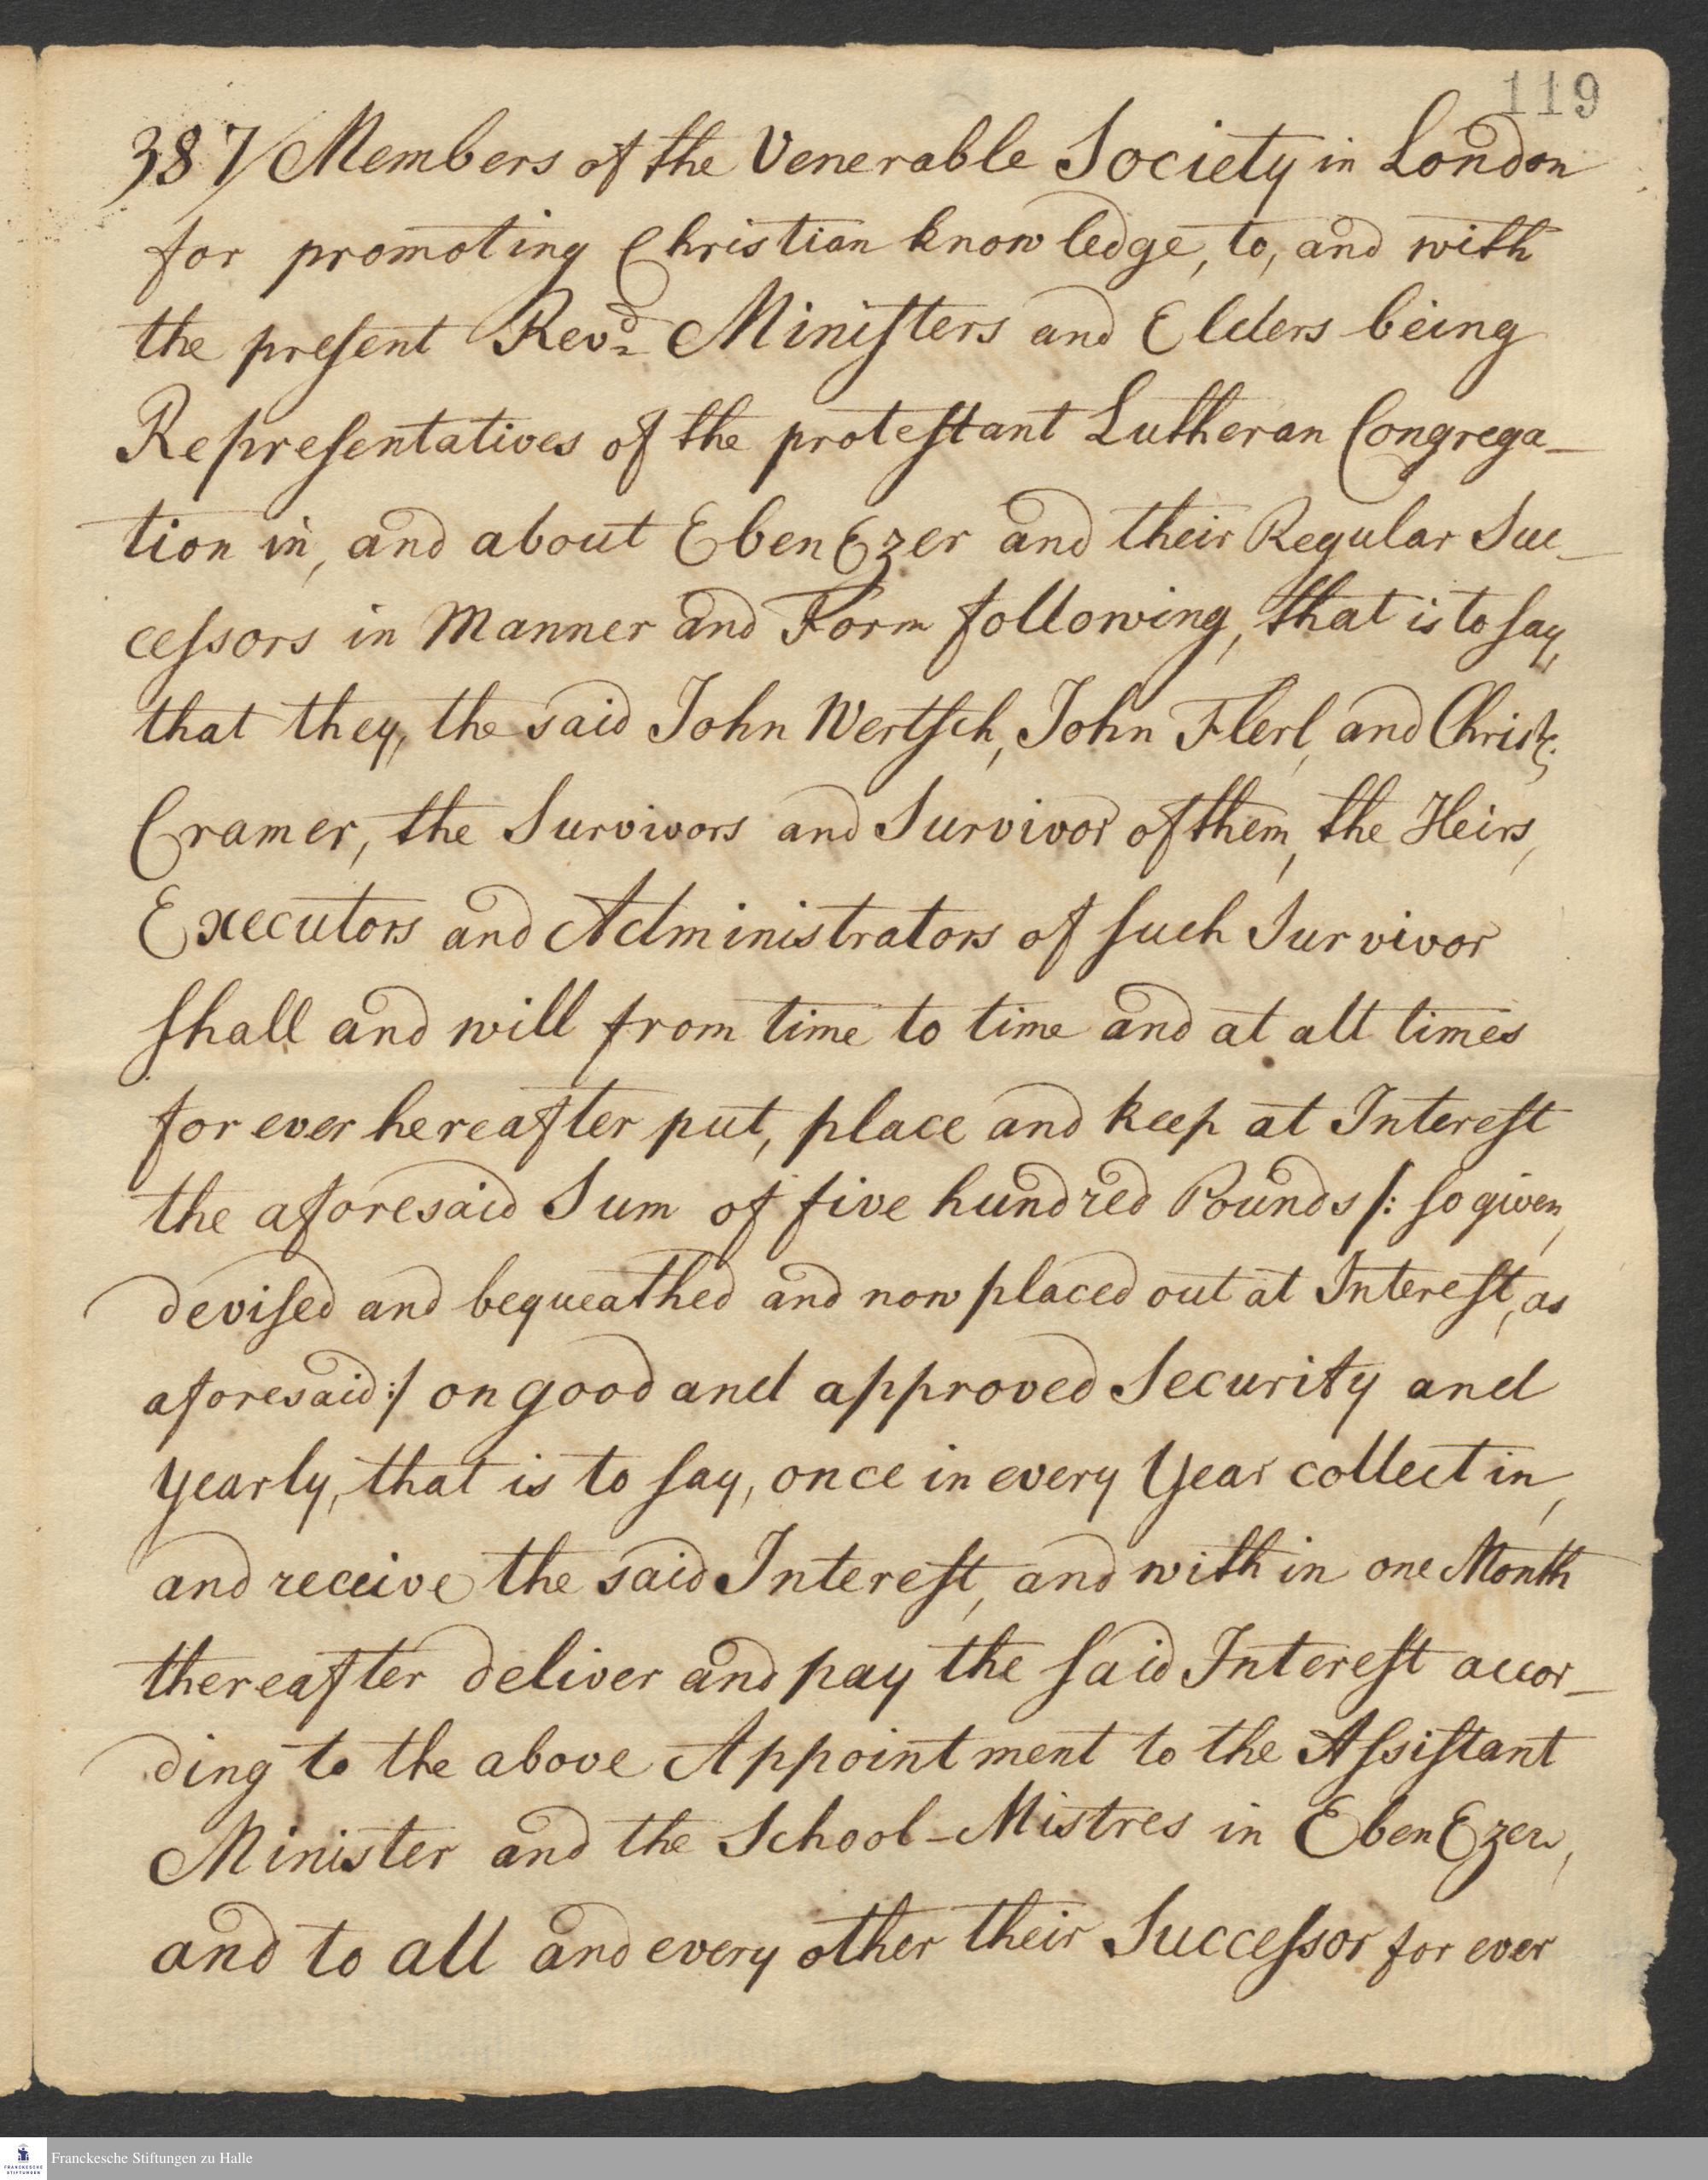 119
387/ Members of the Venerable Society in London
for promoting Christian knowledge, to, and with
the preſent Revd. Miniſters and Elders being
Repreſentatives of the proteſtant Lutheran Congrega-
tion in, and about EbenEzer and their Regular Suc-
ceſsors in Manner and Form following, that is to ſay,
that they, the said John Wertſch, John Flerl, and Christ:
Cramer, the Survivors and Survivor of them, the Heirs,
Executors and Administrators of ſuch Survivor
ſhall and will from time to time and at all times
for ever hereafter put, place and keep at Intereſt
the aforesaid Sum of five hundred Pounds /: ſo given,
deviſed and bequeathed and now placed out at Intereſt, as
aforesaid :/ on good and approved Security and
yearly, that is to ſay, once in every Year collect in,
and receive the said Intereſt, and with in one Month
thereafter deliver and pay the ſaid Intereſt accor-
ding to the above Appointment to the Aſsiſtant
Minister and the School-Mistres in EbenEzer,
and to all and every other their Succeſsor for ever
FRANCKESCHE
STIFTUNGEN
Franckesche Stiftungen zu Halle